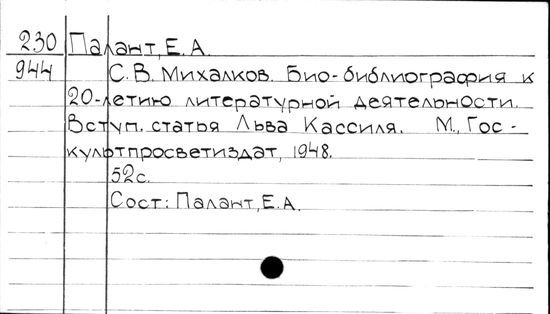 230 Палант, Е. А.
944 С. В. Михалков. Био-библиография к
20-летию литературной деятельности.
Вступ. статья Льва Кассиля. М., Гос-
культпросветиздат, 1948.
52с.
Сост: Палант, Е. А.